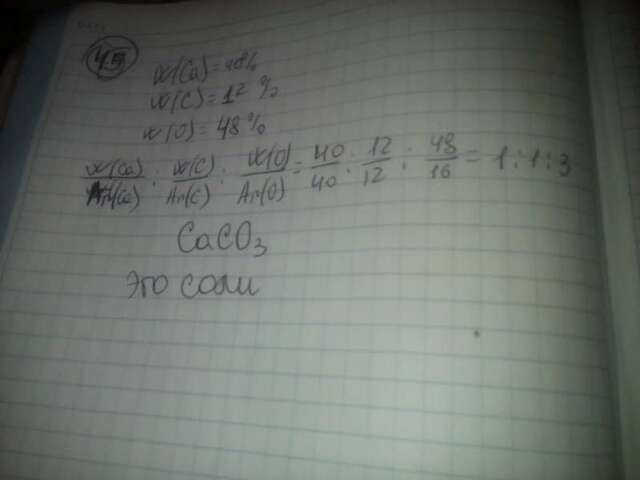 45
w(Ca) = 40%
w(C) = 12%
w(O) = 48%
w(Ca)/Ar(Ca) : w(C)/Ar(C) : w(O)/Ar(O) = 40/40 : 12/12 : 48/16 = 1:1:3
CaCO₃
Это соли